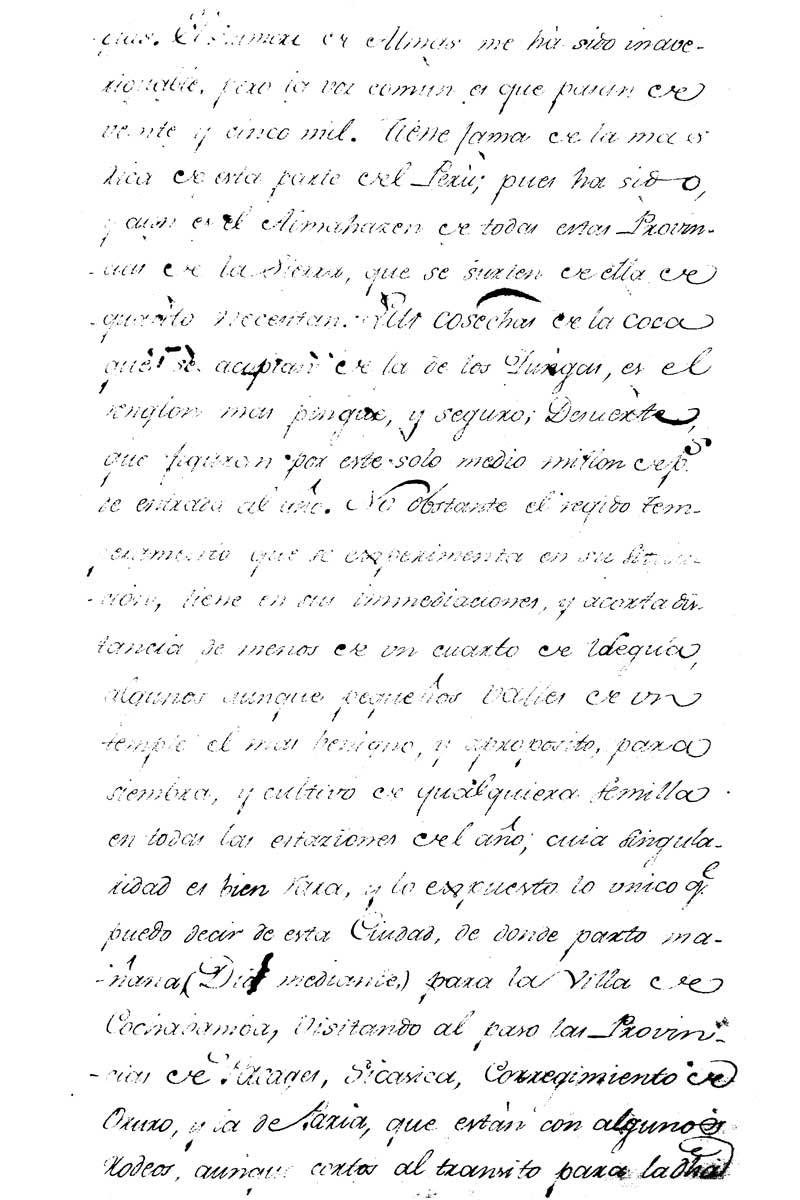 El numero de Almas me ha sido inave-
riguable, pero la voz común es que pasan de
veinte y cinco mil. Tiene fama de la mas
rica de esta parte del Perù; pues ha sido,
y aun es el Almahazen de todas estas Provin-
cias de la Sierra, que se surten de ella de
quanto necesitan. Sus cosechas de la coca
que se acopian de la de los Yungas, es el
renglon mas pingue, y seguro; Desuerte,
que figuran por este solo medio millon de p.s
de entrada al año. No obstante el regido tem-
peramento que se experimenta en su situa-
ción, tiene en sus immediaciones, y acorta dis-
tancia de menos de un cuarto de legua,
algunos aunque pequeños Valles de un
temple el mas benigno, y aproposito, para
siembra, y cultivo de qualquiera semilla
en todas las estaziones del año; cuia singula-
ridad es bien rara, y lo expuesto lo unico q.e
puedo decir de esta Ciudad, de donde parto ma-
ñana (Dios mediante,) para la Villa de
Cochabamba, Visitando al paso las Provin-
cias de Pacages, Sicasica, Corregimiento de
Oruro, y la de Paria, que están con algunos
Rodeos, aunque cortos al transito para la dha